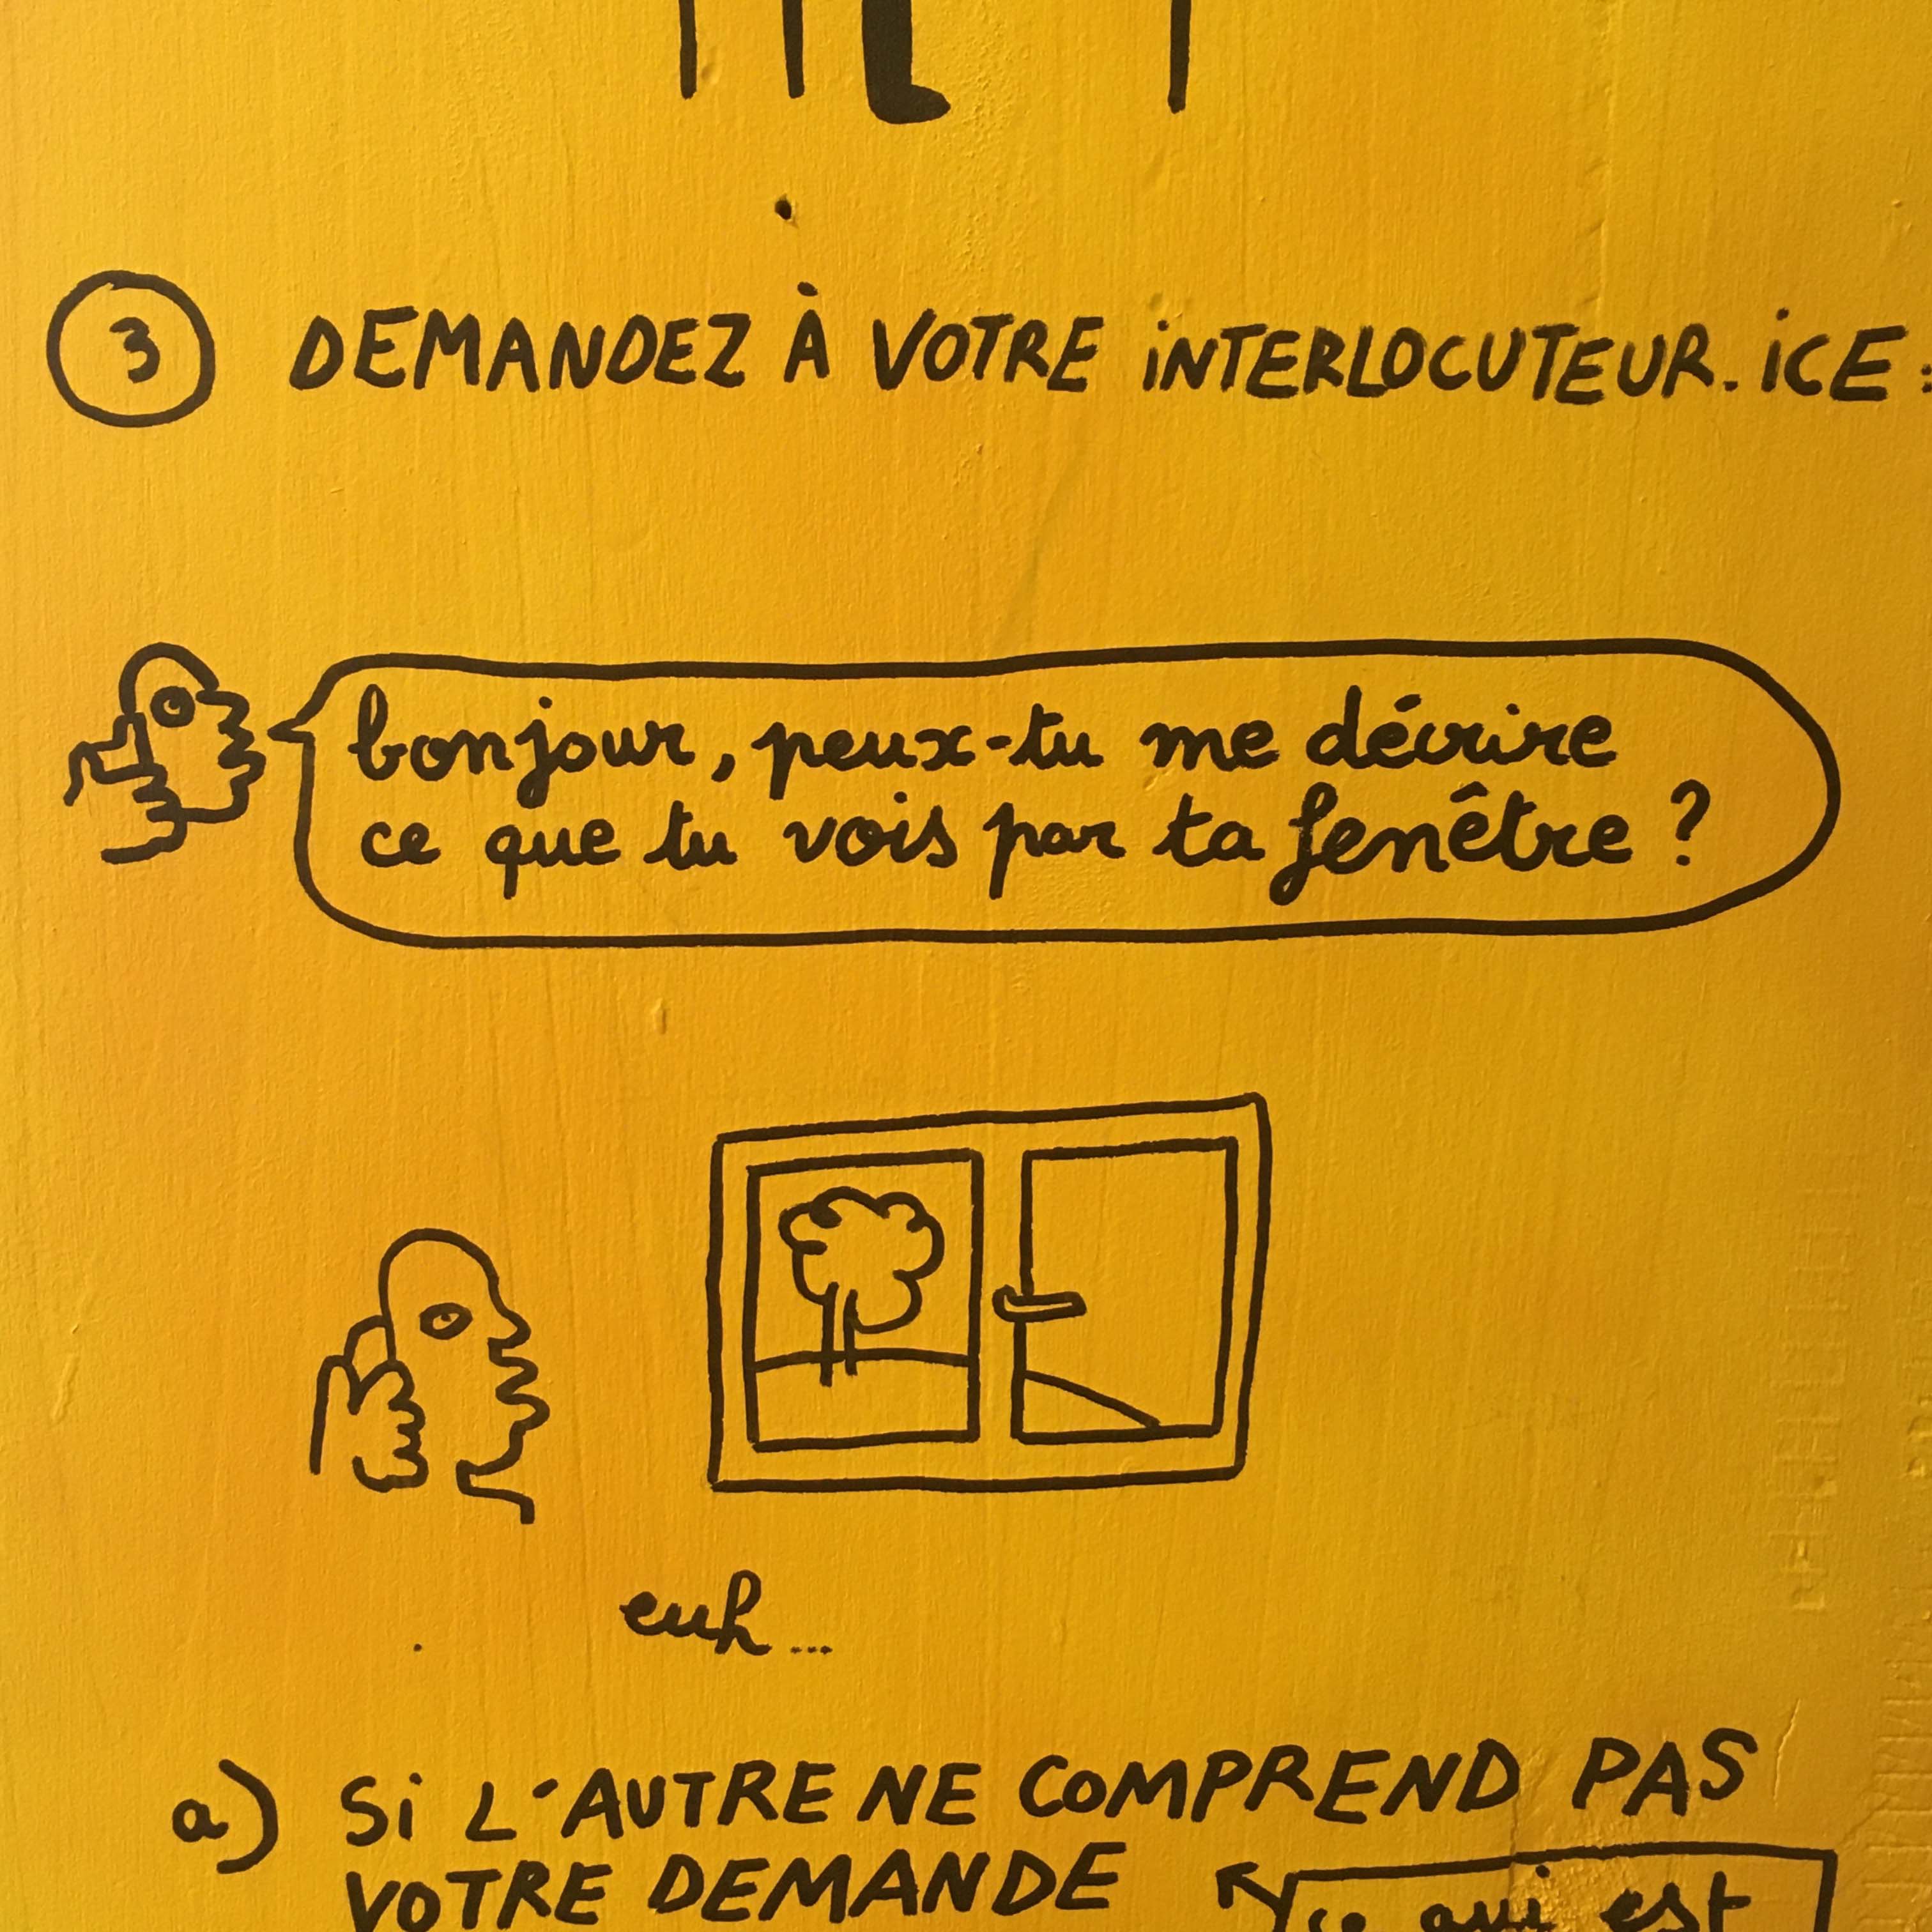 3 DEMANDEZ À VOTRE iNTERLOCUTEUR.iCE :
bonjour, peux-tu me décrire
ce que tu vois par ta fenêtre ?
euh...
a) Si L'AUTRE NE COMPREND PAS
VOTRE DEMANDE
ce qui est